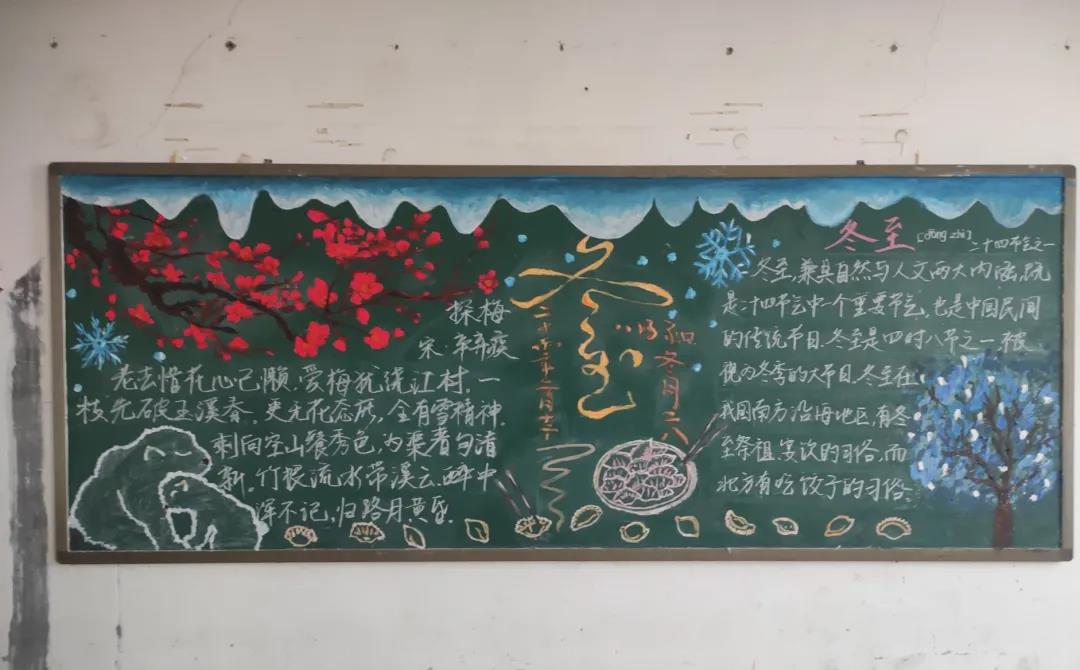 探梅
宋·辛弃疾
老去惜花心已懒,爱梅犹绕江村,一
枝先破玉溪春,更无花态度,全有雪精神,
剩向空山餐秀色,为渠着句清
新,竹根流水带溪云,醉中
浑不记,归路月黄昏.
冬至
冬月六
冬至[dōng zhì]
二十四节气之一
冬至,兼具自然与人文两大内涵,既
是二十四节气中一个重要节气,也是中国民间
的传统节日.冬至是四时八节之一,被
视为冬季的大节日,冬至在
我国南方沿海地区,有冬
至祭祖、宴饮的习俗,而
北方有吃饺子的习俗